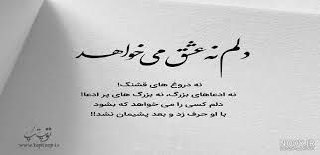 دلم نه عشق می خواهد
نه دروغ های قشنگ!
نه ادعاهای بزرگ، نه بزرگ های پر ادعا!
دلم کسی را می خواهد که بشود
با او حرف زد و بعد پشیمان نشد!!